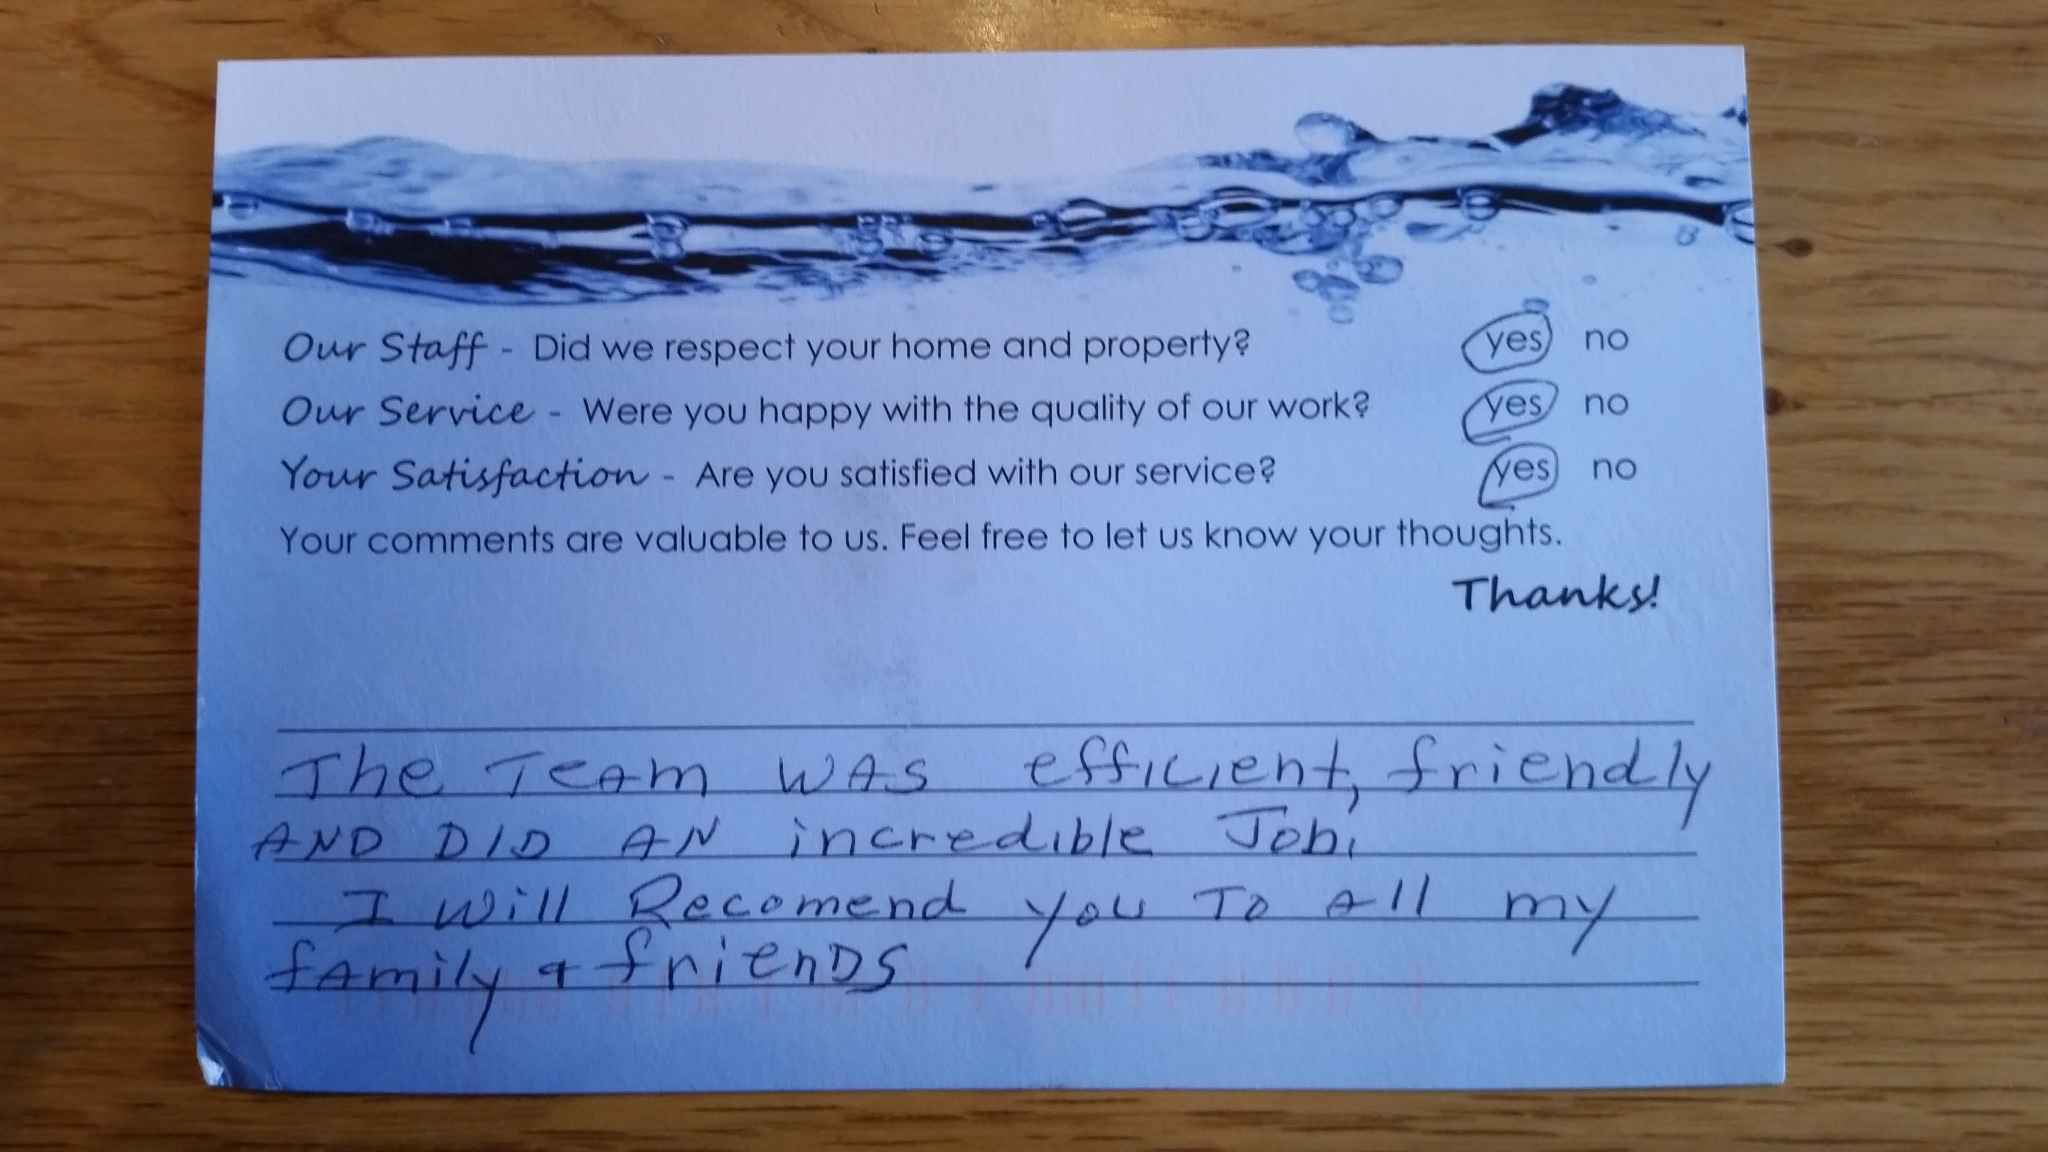 Our Staff - Did we respect your home and property? yes no
Our Service - Were you happy with the quality of our work? yes no
Your Satisfaction - Are you satisfied with our service? yes no
Your comments are valuable to us. Feel free to let us know your thoughts.
Thanks!
The Team was efficient, friendly
AND DID AN incredible Job.
I will Recomend you To All my
family & friends